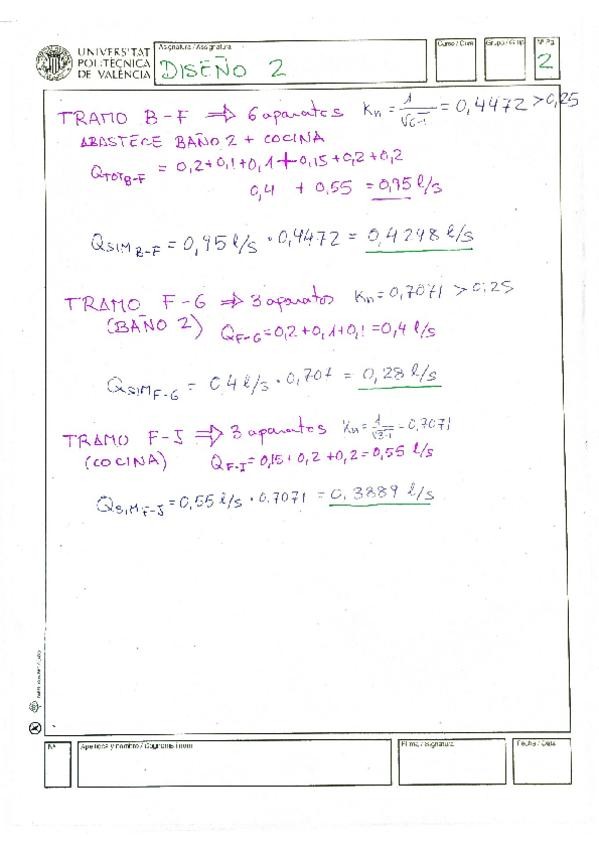 UNIVERSITAT
POLITÈCNICA
DE VALÈNCIA
Asignatura / Assignatura
DISEÑO 2
Curso / Curs
Grupo / Grup
Nº Pg.
2
TRAMO B-F ⇒ 6 aparatos Kn = 1/√6-1 = 0,4472 > 0,25
ABASTECE BAÑO 2 + COCINA
QTOTB-F = 0,2+0,1+0,1+0,15+0,2+0,2
0,4 + 0,55 = 0,95 l/s
QSIMB-F = 0,95 l/s · 0,4472 = 0,4248 l/s
TRAMO F-G ⇒ 3 aparatos Kn = 0,7071 > 0,25
(BAÑO 2) QF-G = 0,2+0,1+0,1 = 0,4 l/s
QSIMF-G = 0,4 l/s · 0,707 = 0,28 l/s
TRAMO F-J ⇒ 3 aparatos Kn = 1/√3-1 = 0,7071
(COCINA) QF-J = 0,15+0,2+0,2 = 0,55 l/s
QSIMF-J = 0,55 l/s · 0,7071 = 0,3889 l/s
Nº
Apellidos y nombre / Cognoms i nom
Firma / Signatura
Fecha / Data